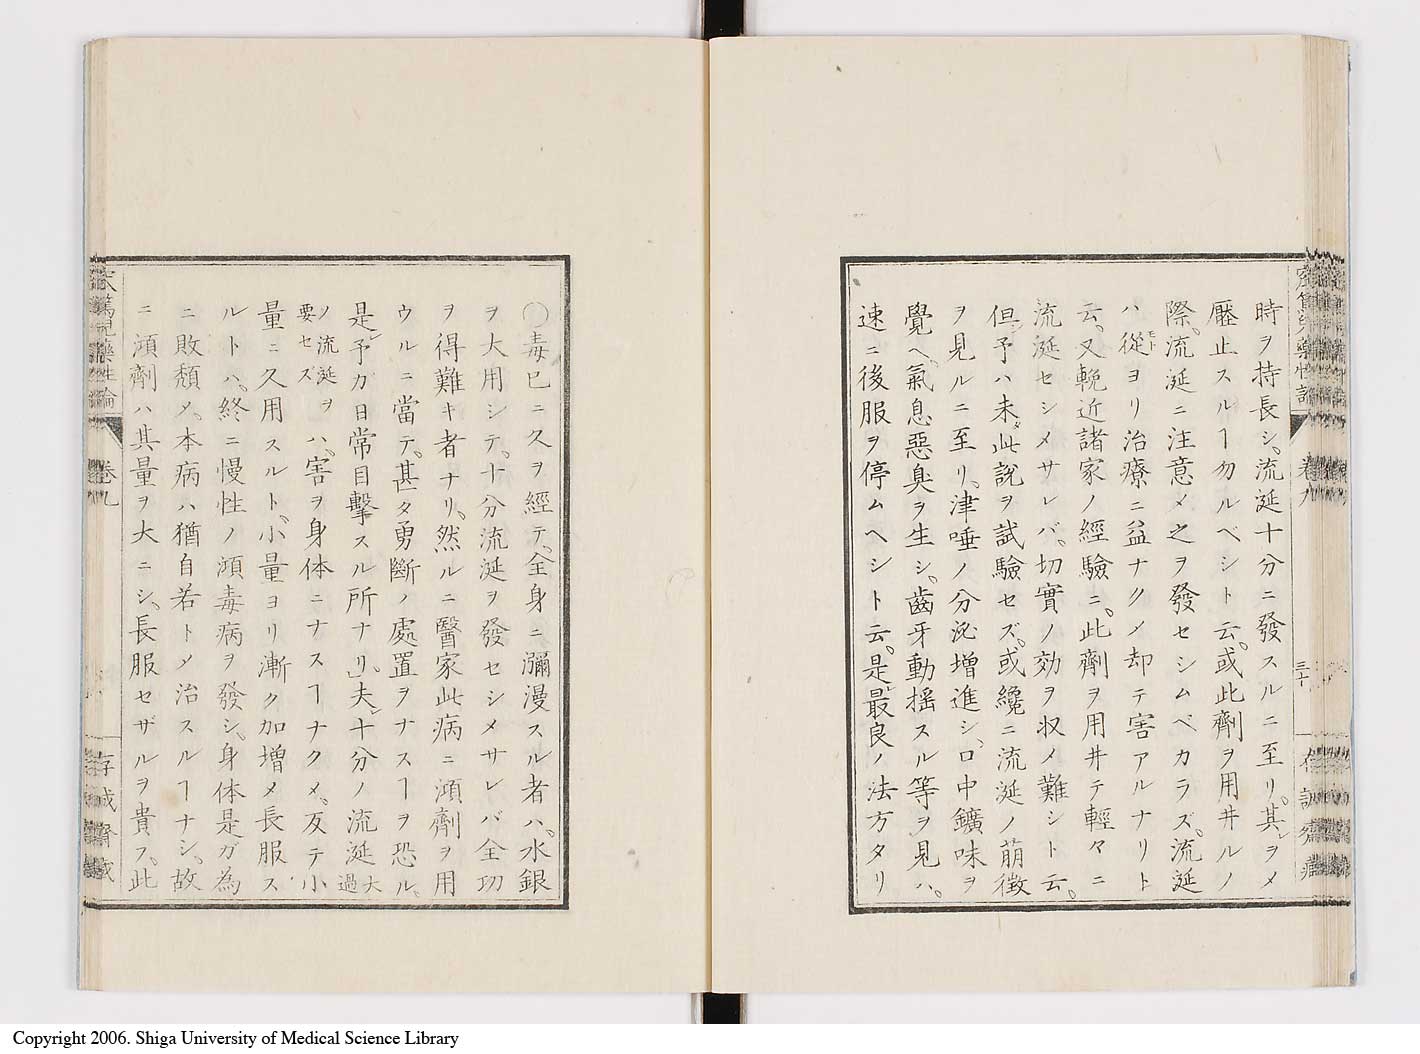 時ヲ持長シ。流涎十分ニ發スルニ至リ。其レヲメ
壓止スルヿ勿ルベシト云。或此劑ヲ用井ルノ
際。流涎ニ注意メ之ヲ發セシムベカラズ。流涎
ハ從モトヨリ治療ニ益ナクメ却テ害アルナリト
云。又輓近諸家ノ經驗ニ。此劑ヲ用井テ輕々ニ
流涎セシメサレバ。切實ノ効ヲ収メ難シト云。
但シ予ハ未タ此說ヲ試驗セズ。或纔ニ流涎ノ萠徴
ヲ見ルニ至リ。津唾ノ分泌増進シ。口中鑛味ヲ
覺ヘ。氣息惡臭ヲ生シ。齒牙動揺スル等ヲ見ハ。
速ニ後服ヲ停ムヘシト云。是レ最良ノ法方タリ
卷九
三十
〇毒已ニ久ヲ經テ。全身ニ瀰漫スル者ハ。水銀
ヲ大用シテ。十分流涎ヲ發セシメサレバ全功
ヲ得難キ者ナリ。然ルニ醫家此病ニ澒劑ヲ用
ウルニ當テ。甚タ勇斷ノ處置ヲナスヿヲ恐ル。
是レ予ガ日常目擊スル所ナリ。」夫レ十分ノ流涎大過
ノ流涎ヲ要セズハ。害ヲ身体ニナスヿナクメ。反テ小
量ニ久用スルト。小量ヨリ漸ク加増メ長服ス
ルトハ。終ニ慢性ノ澒毒病ヲ發シ。身体是ガ為
ニ敗頽メ。本病ハ猶自若トメ治スルヿナシ。故
ニ澒劑ハ其量ヲ大ニシ。長服セザルヲ貴フ。此
卷九
Copyright 2006. Shiga University of Medical Science Library